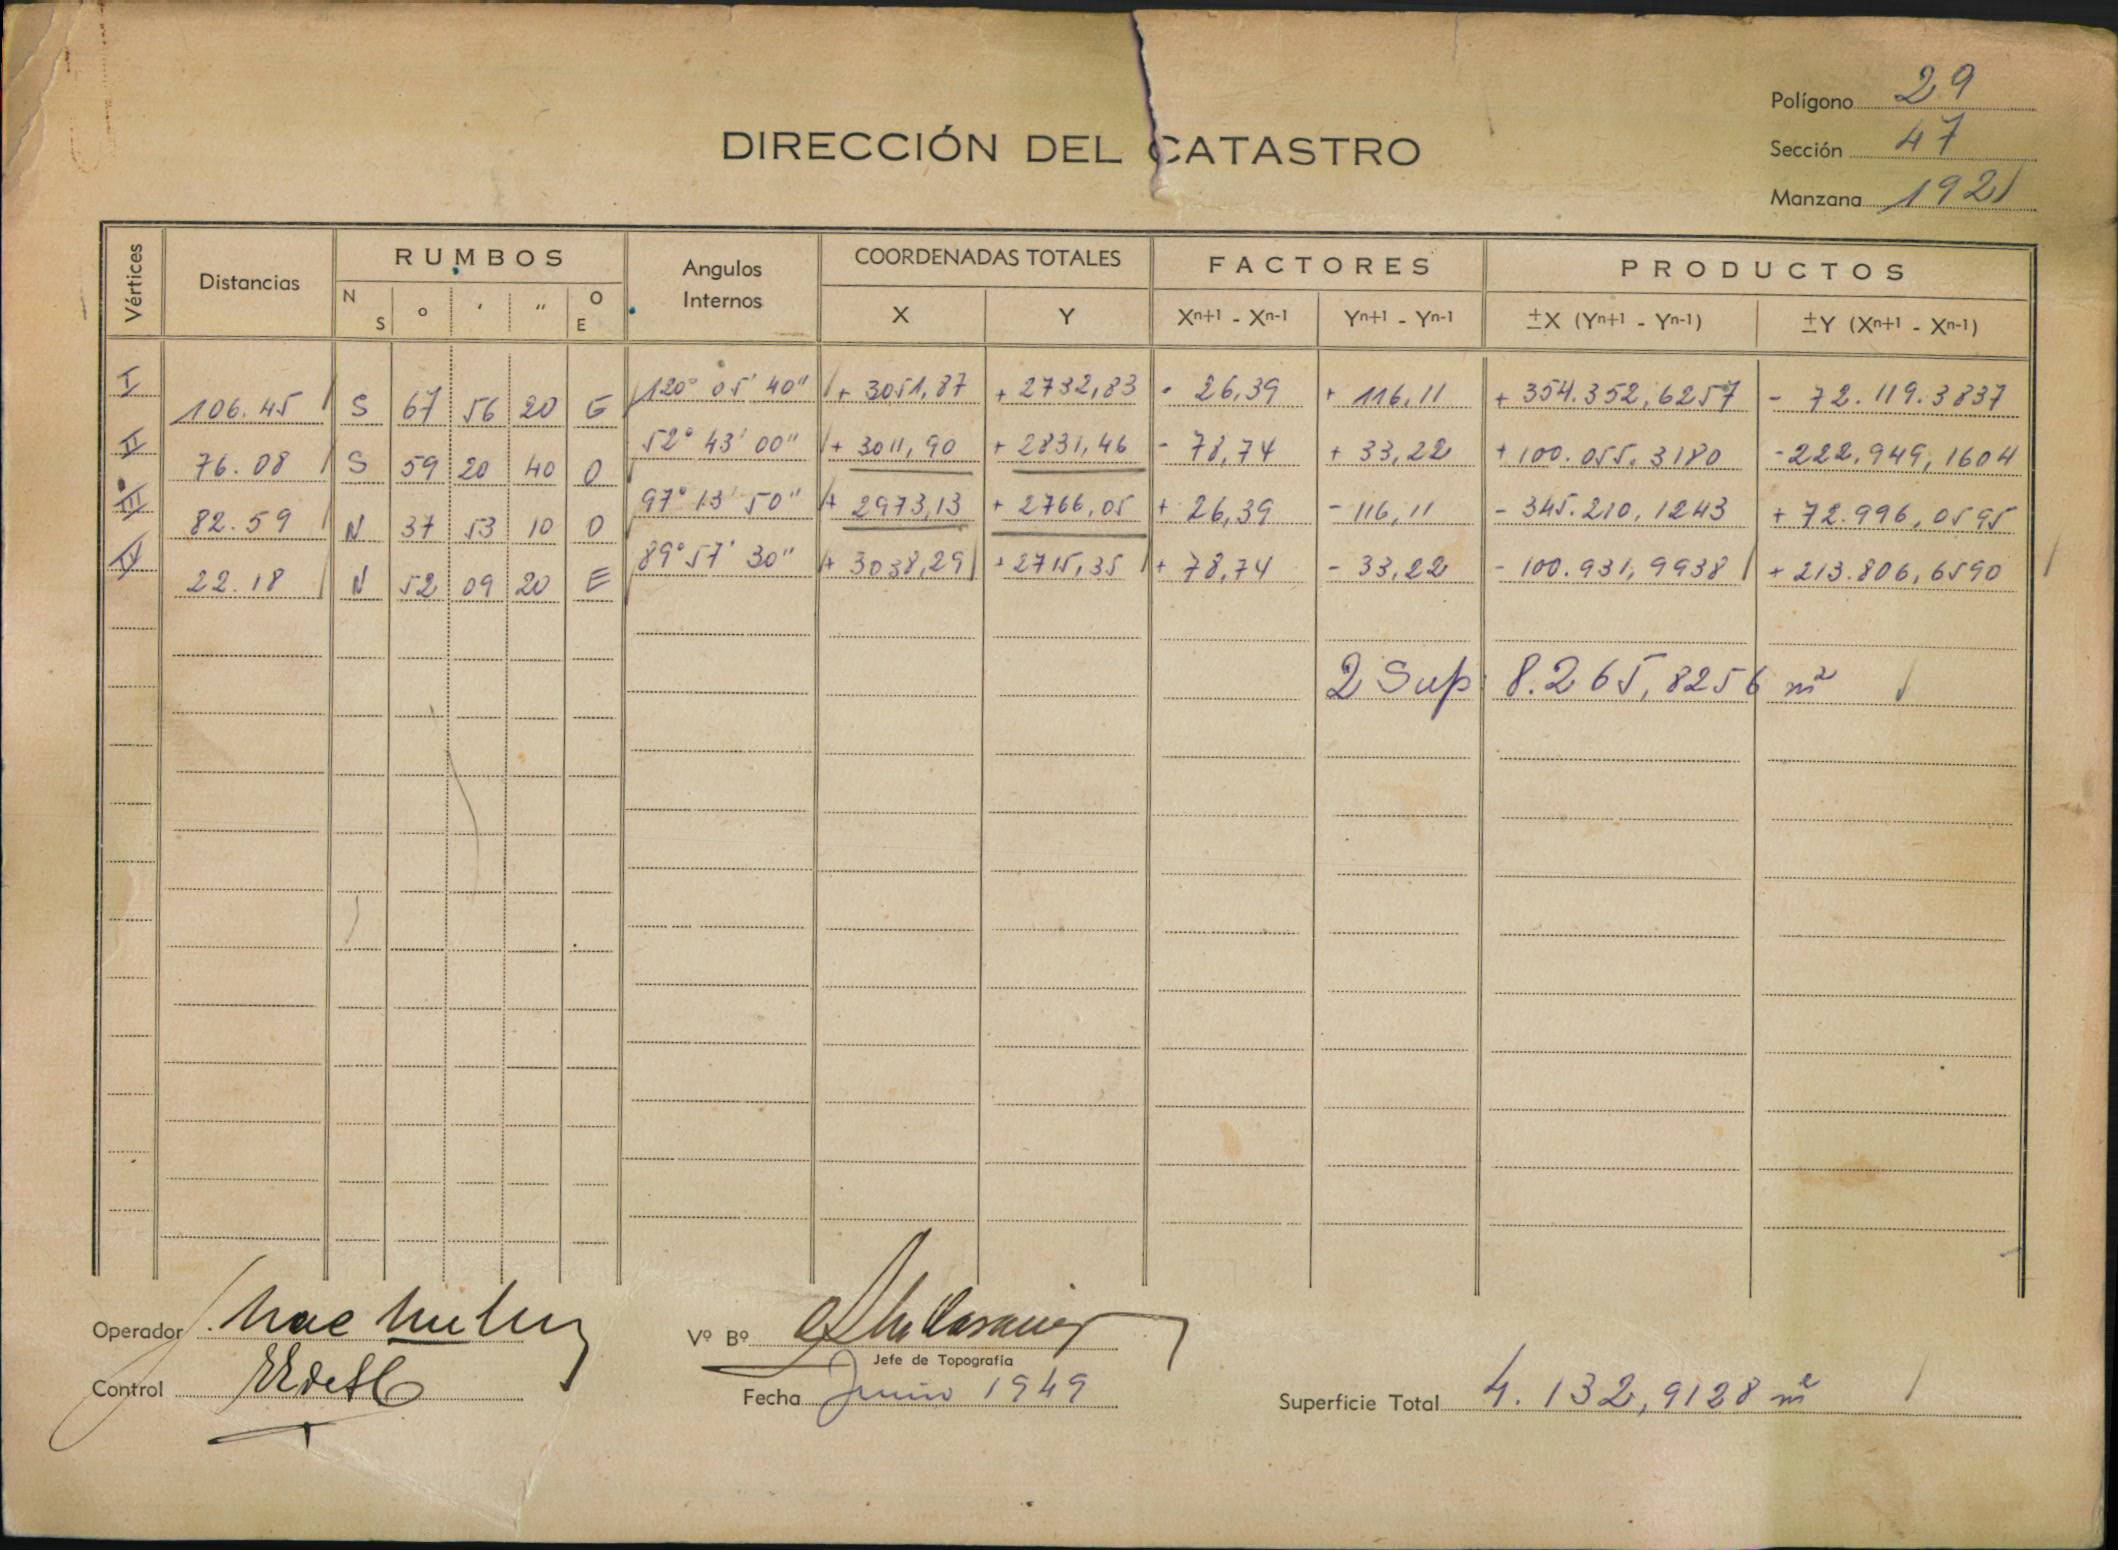 Polígono 29
DIRECCIÓN DEL CATASTRO
Sección 47
Manzana 1921
Vértices Distancias RUMBOS Angulos Internos COORDENADAS TOTALES FACTORES PRODUCTOS
N S o ′ ″ O E X Y Xn+1 - Xn-1 Yn+1 - Yn-1 ±X (Yn+1 - Yn-1) ±Y (Xn+1 - Xn-1)
I 106.45 S 67 56 20 E 120° 05' 40" + 3051,87 + 2732,83 - 26,39 + 116,11 + 354.352,6257 - 72.119.3837
II 76.08 S 59 20 40 O 52° 43' 00" + 3011,90 + 2831,46 - 78,74 + 33,22 + 100.055.3180 - 222.949,1604
III 82.59 N 37 53 10 O 97° 13' 50" + 2973,13 + 2766,05 + 26,39 - 116,11 - 345.210,1243 + 72.996,0595
IV 22.18 N 52 09 20 E 89° 57' 30" + 3038,29 + 2715,35 + 78,74 - 33,22 - 100.931,9938 + 213.806,6590
2 Sup 8.265,8256 m²
Operador
Vº Bº
Jefe de Topografía
Control
Fecha Junio 1949
Superficie Total 4.132,9128 m²